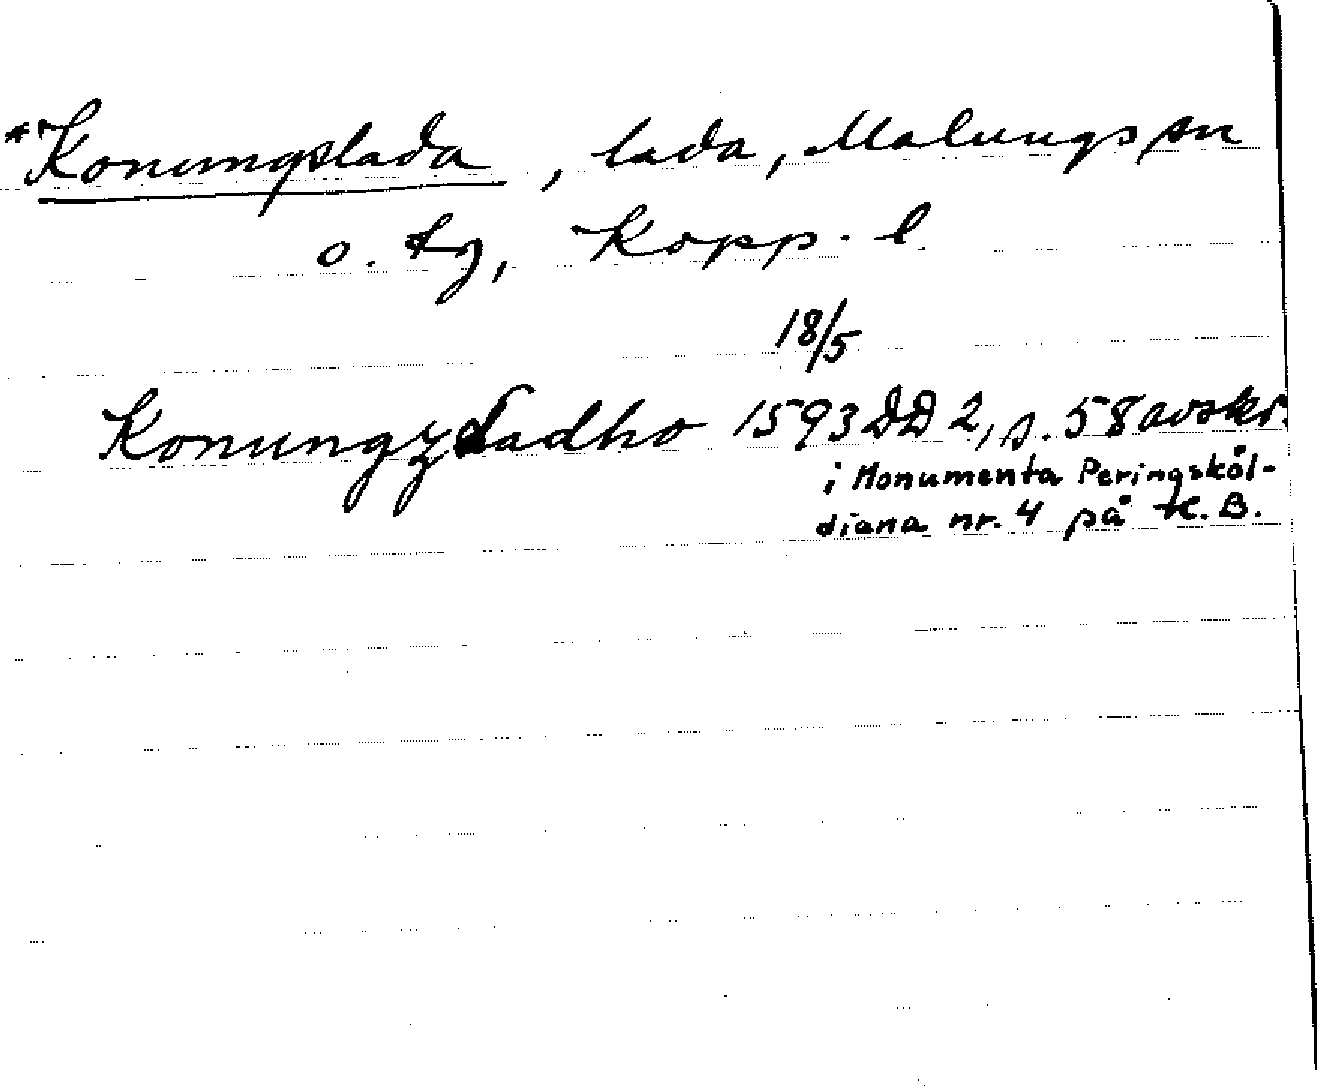 *Konungslada, lada, Malungs sn
o. tg, Kopp. l
18/5
Konungzladho 1593 DD 2, s. 58 avskr.
i Monumenta Peringsköl-
diana nr. 4 på K. B.